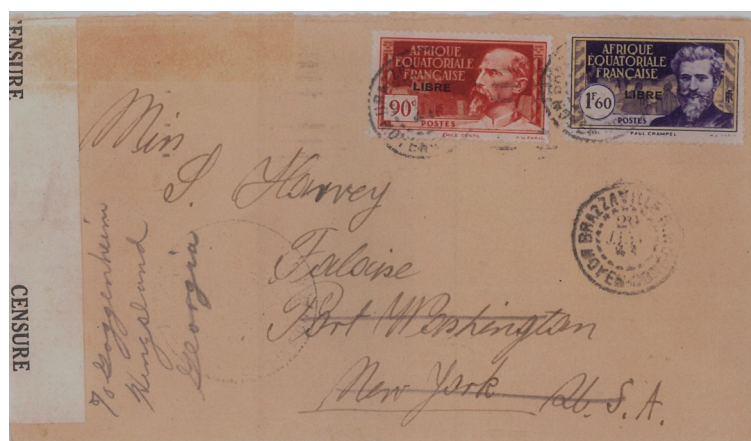 CENSURE
CENSURE
AFRIQUE
ÉQUATORIALE
FRANÇAISE
LIBRE
90c
POSTES
AFRIQUE
ÉQUATORIALE
FRANÇAISE
LIBRE
1F60
POSTES
PAUL CRAMPEL
BRAZZAVILLE
MOYEN-CONGO
Miss
S. Harvey
Falaise
Port Washington
New York U.S.A.
℅ Guggenheim
Kingsland
Georgia